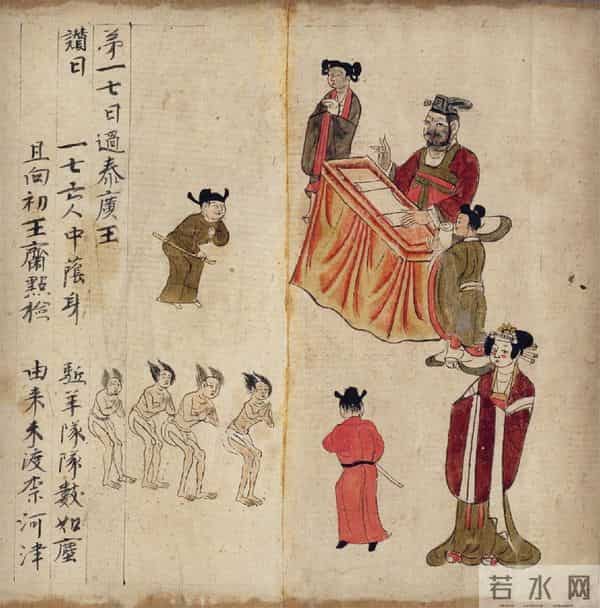 苐一七日過泰廣王
讃曰 一七亡人中蔭身 駈羊隊隊數如塵
且向初王齋點檢 由来未渡柰河津
若水网